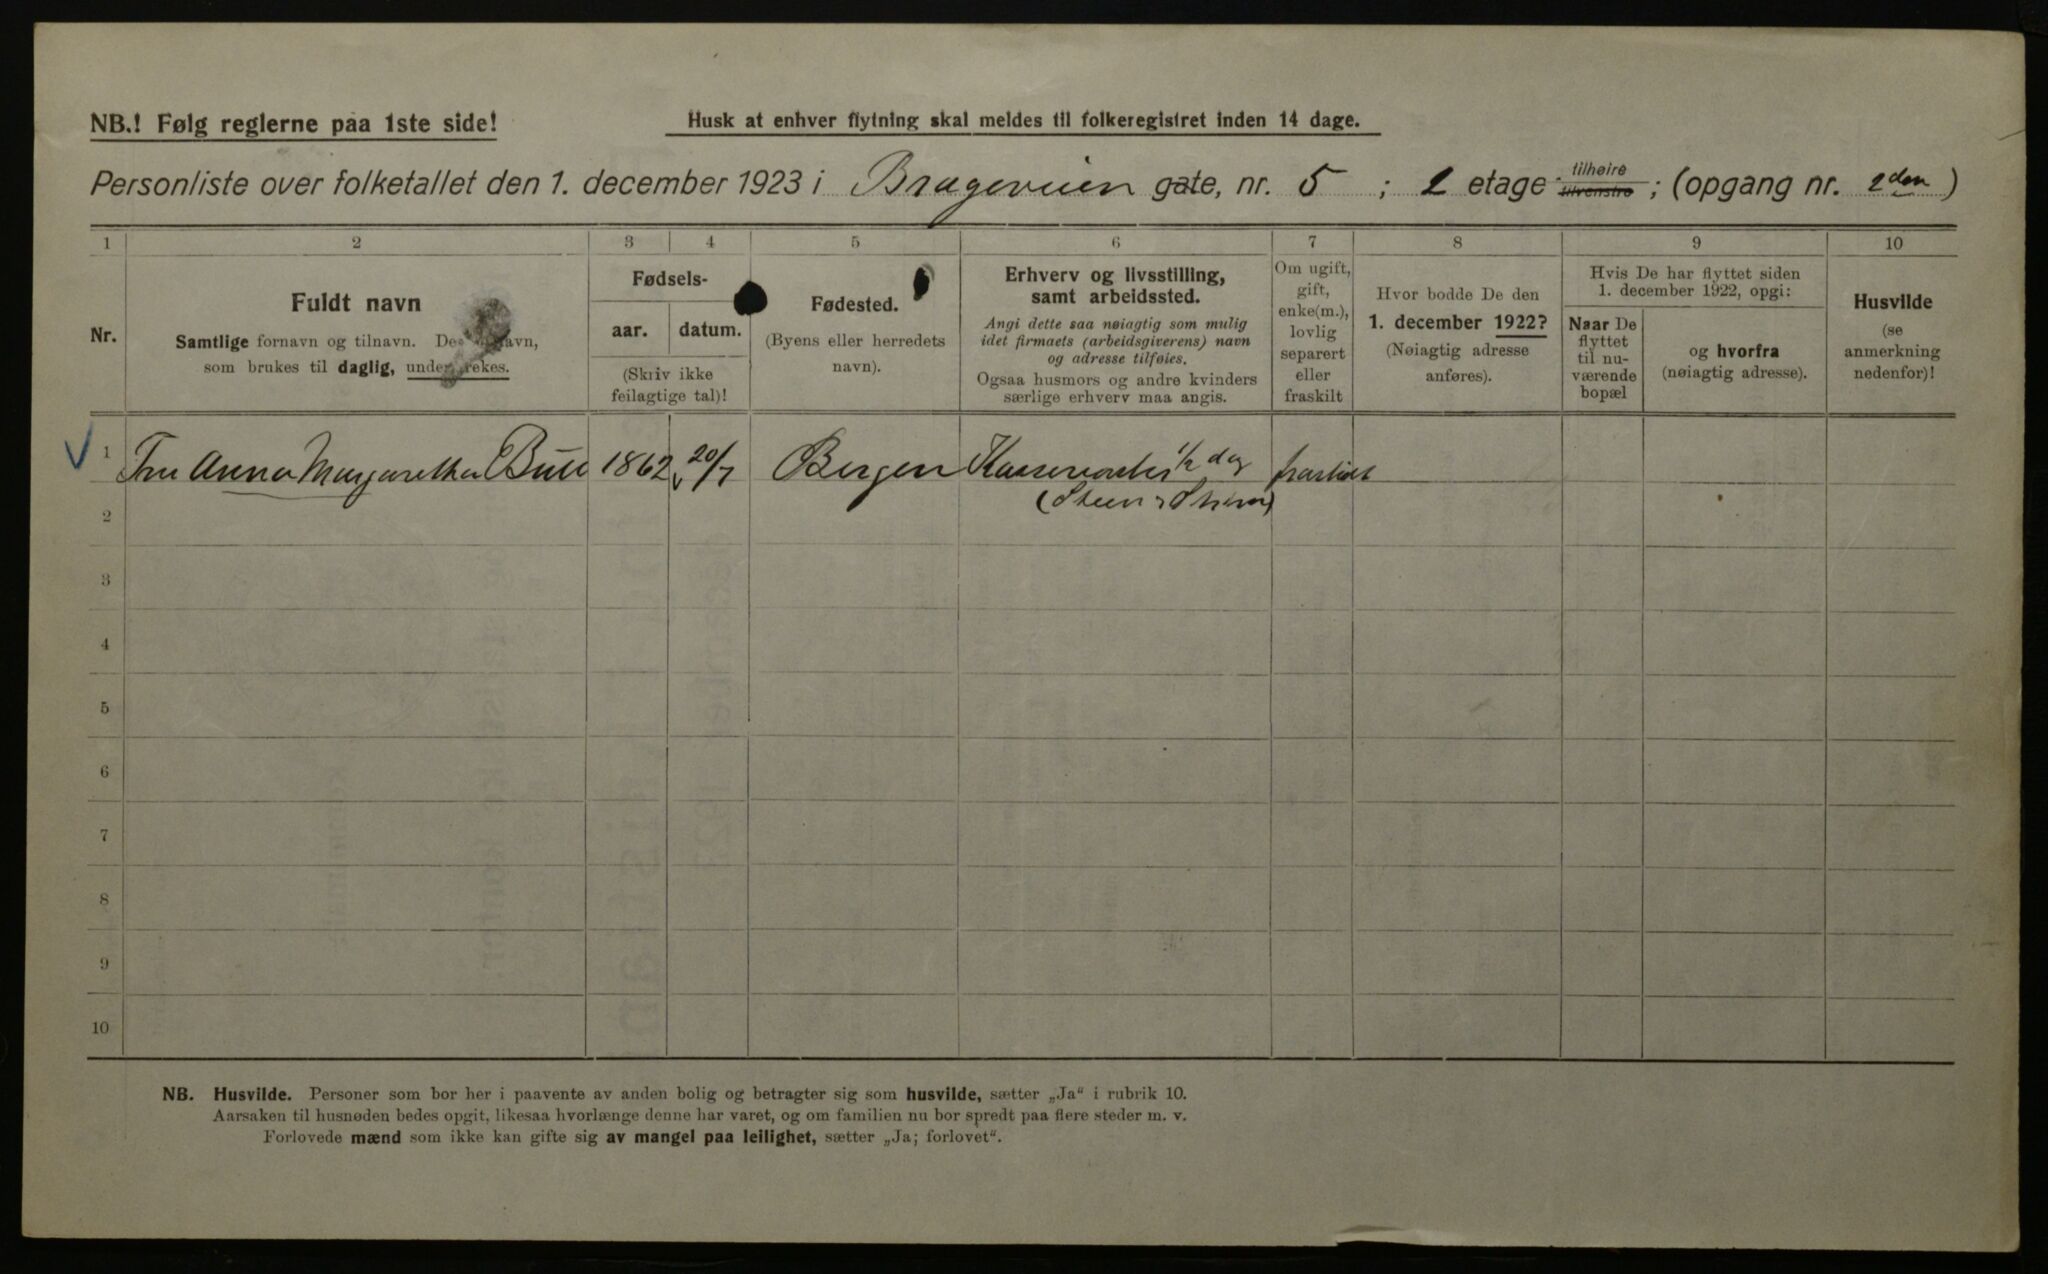 NB.! Følg reglerne paa 1ste side!
Husk at enhver flytning skal meldes til folkeregistret inden 14 dage.
Personliste over folketallet den 1. december 1923 i Brageveien gate, nr. 5 ; 2 etage tilhøire tilvenstre ; (opgang nr. 2den )
1 2 3 4 5 6 7 8 9 10
Nr.
Fuldt navn
Samtlige fornavn og tilnavn. navn,
som brukes til daglig,
Fødsels-
aar. datum.
(Skriv ikke
feilagtige tal)!
Fødested.
(Byens eller herredets
navn).
Erhverv og livsstilling,
samt arbeidssted.
Angi dette saa nøiagtig som mulig
idet firmaets (arbeidsgiverens) navn
og adresse tilføies.
Ogsaa husmors og andre kvinders
særlige erhverv maa angis.
Om ugift,
gift,
enke(m.),
lovlig
separert
eller
fraskilt
Hvor bodde De den
1. december 1922?
(Nøiagtig adresse
anføres).
Hvis De har flyttet siden
1. december 1922, opgi:
Naar De
flyttet
til nu-
værende
bopæl
og hvorfra
(nøiagtig adresse).
Husvilde
(se
anmerkning
nedenfor)!
1 Fru Anna Margaretha Bull 1862 20/7 Bergen 1/2 dag fraskilt
2 (Steen & Strøm)
3
4
5
6
7
8
9
10
NB. Husvilde. Personer som bor her i paavente av anden bolig og betragter sig som husvilde, sætter „Ja“ i rubrik 10.
Aarsaken til husnøden bedes opgit, likesaa hvorlænge denne har varet, og om familien nu bor spredt paa flere steder m. v.
Forlovede mænd som ikke kan gifte sig av mangel paa leilighet, sætter „Ja; forlovet“.